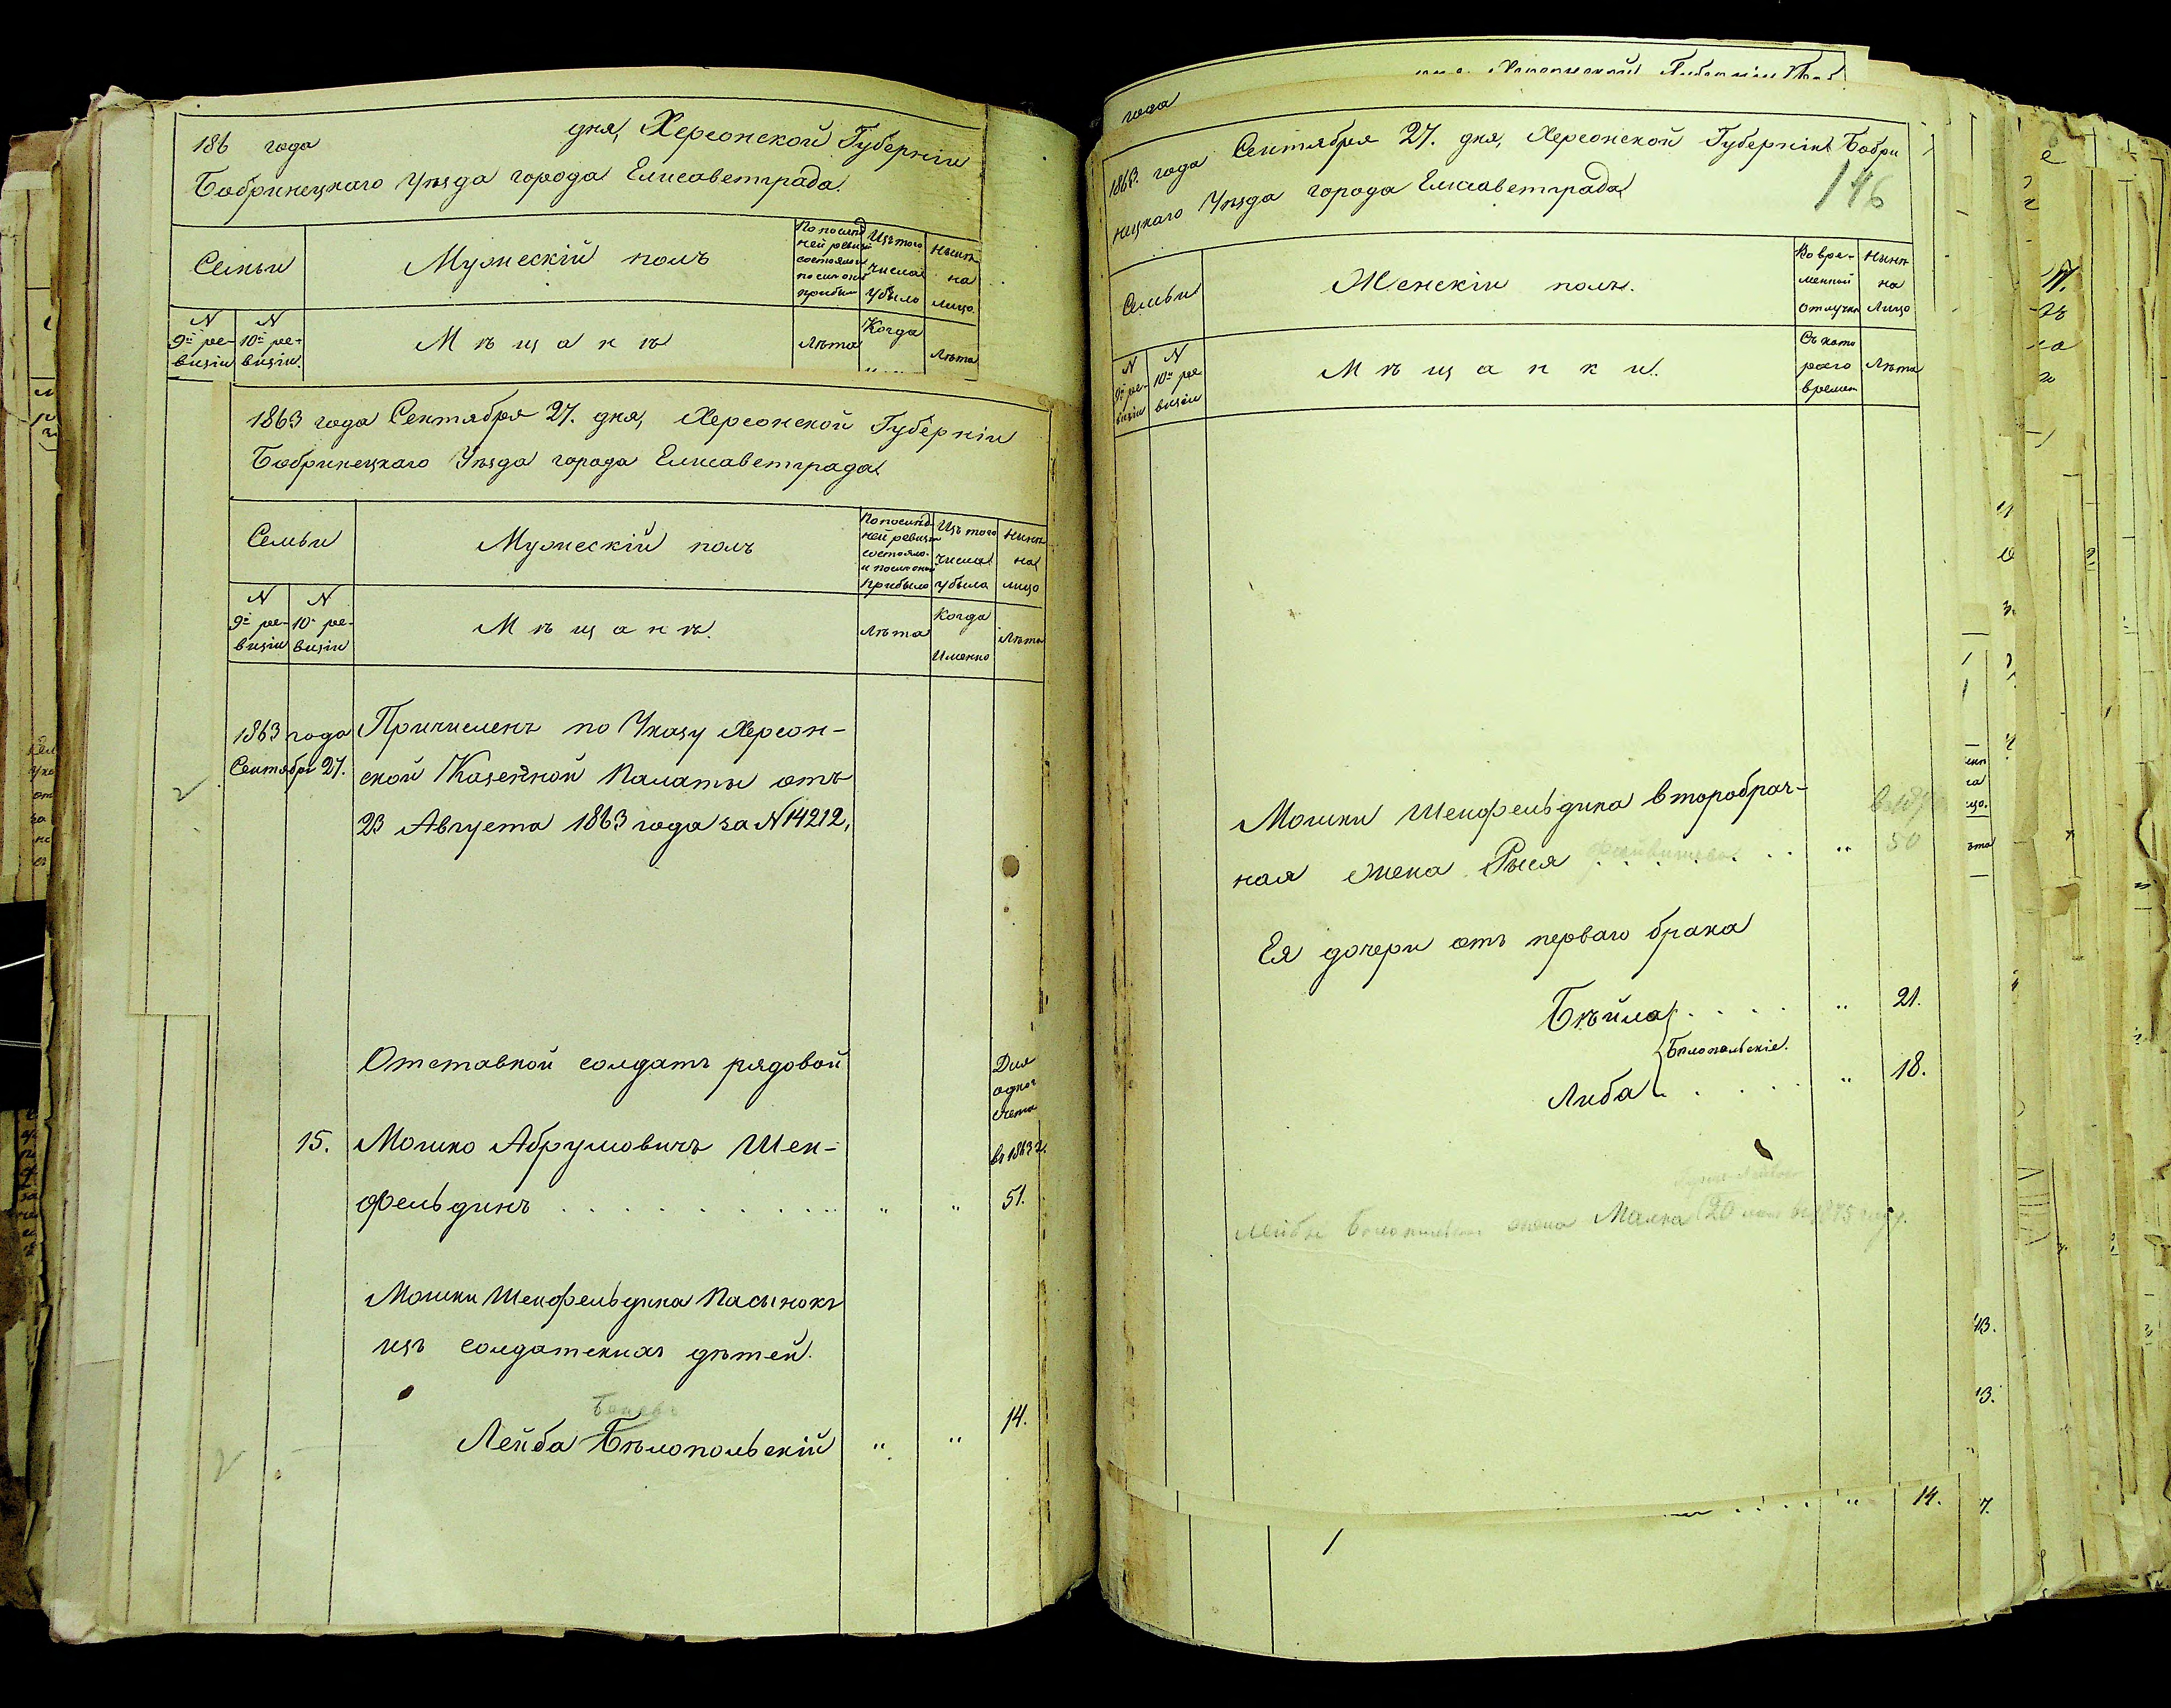 186 года дня, Херсонской Губерніи
Бобринецкаго Уѣзда города Елисаветграда
Семьи
Мужескій полъ
По послѣд
ней ревизіи
состояло и
послѣ оной
прибыло
Изъ того
числа
убыло
Нынѣ
на
лицо
N
9й ре-
визіи
N
10й ре-
визіи
Мѣщанъ
Лѣта
Когда
Лѣта
1863 года Сентября 27. дня, Херсонской Губерніи
Бобринецкаго Уѣзда города Елисаветграда
Семьи
Мужескій полъ
По послѣд-
ней ревизіи
состояло
и послѣ оной
прибыло
Изъ того
числа
убыло
Нынѣ
на
лицо
N
9й ре-
визіи
N
10й ре-
визіи
Мѣщанъ.
Лѣта
Когда
Именно
Лѣта
1863 года
Сентября 27.
Причисленъ по Указу Херсон-
ской Казенной Палаты отъ
23 Августа 1863 года за N 14212,
Отставной солдатъ рядовой
Для
одного
счета
15. Мошко Абрумовичъ Шен-
въ 1863 г.
фельдинъ . . . . . . . . . „ „ 51.
Мошки Шенфельдина Пасынокъ
изъ солдатскихъ дѣтей.
Лейба Бѣлопольскій „ „ 14.
года
1863. года Сентября 27. дня, Херсонской Губерніи Бобри
нецкаго Уѣзда города Елисаветграда
146
Семьи
Женскій полъ.
Во вре-
менной
отлучкѣ
Нынѣ
на
Лицо
N
9й ре-
визіи
N
10й ре-
визіи
Мѣщанки.
Съ кото
раго
времен
Лѣта
Мошки Шенфельдина второбрач-
ная жена Рыся . . . . . . „ 50
Ея дочери отъ перваго брака
Бѣйла . . . . „ 21.
Бѣлопольскіе.
Либа . . . . „ 18.
Лейбы жена Малка 20 1875 году.
„ 14.